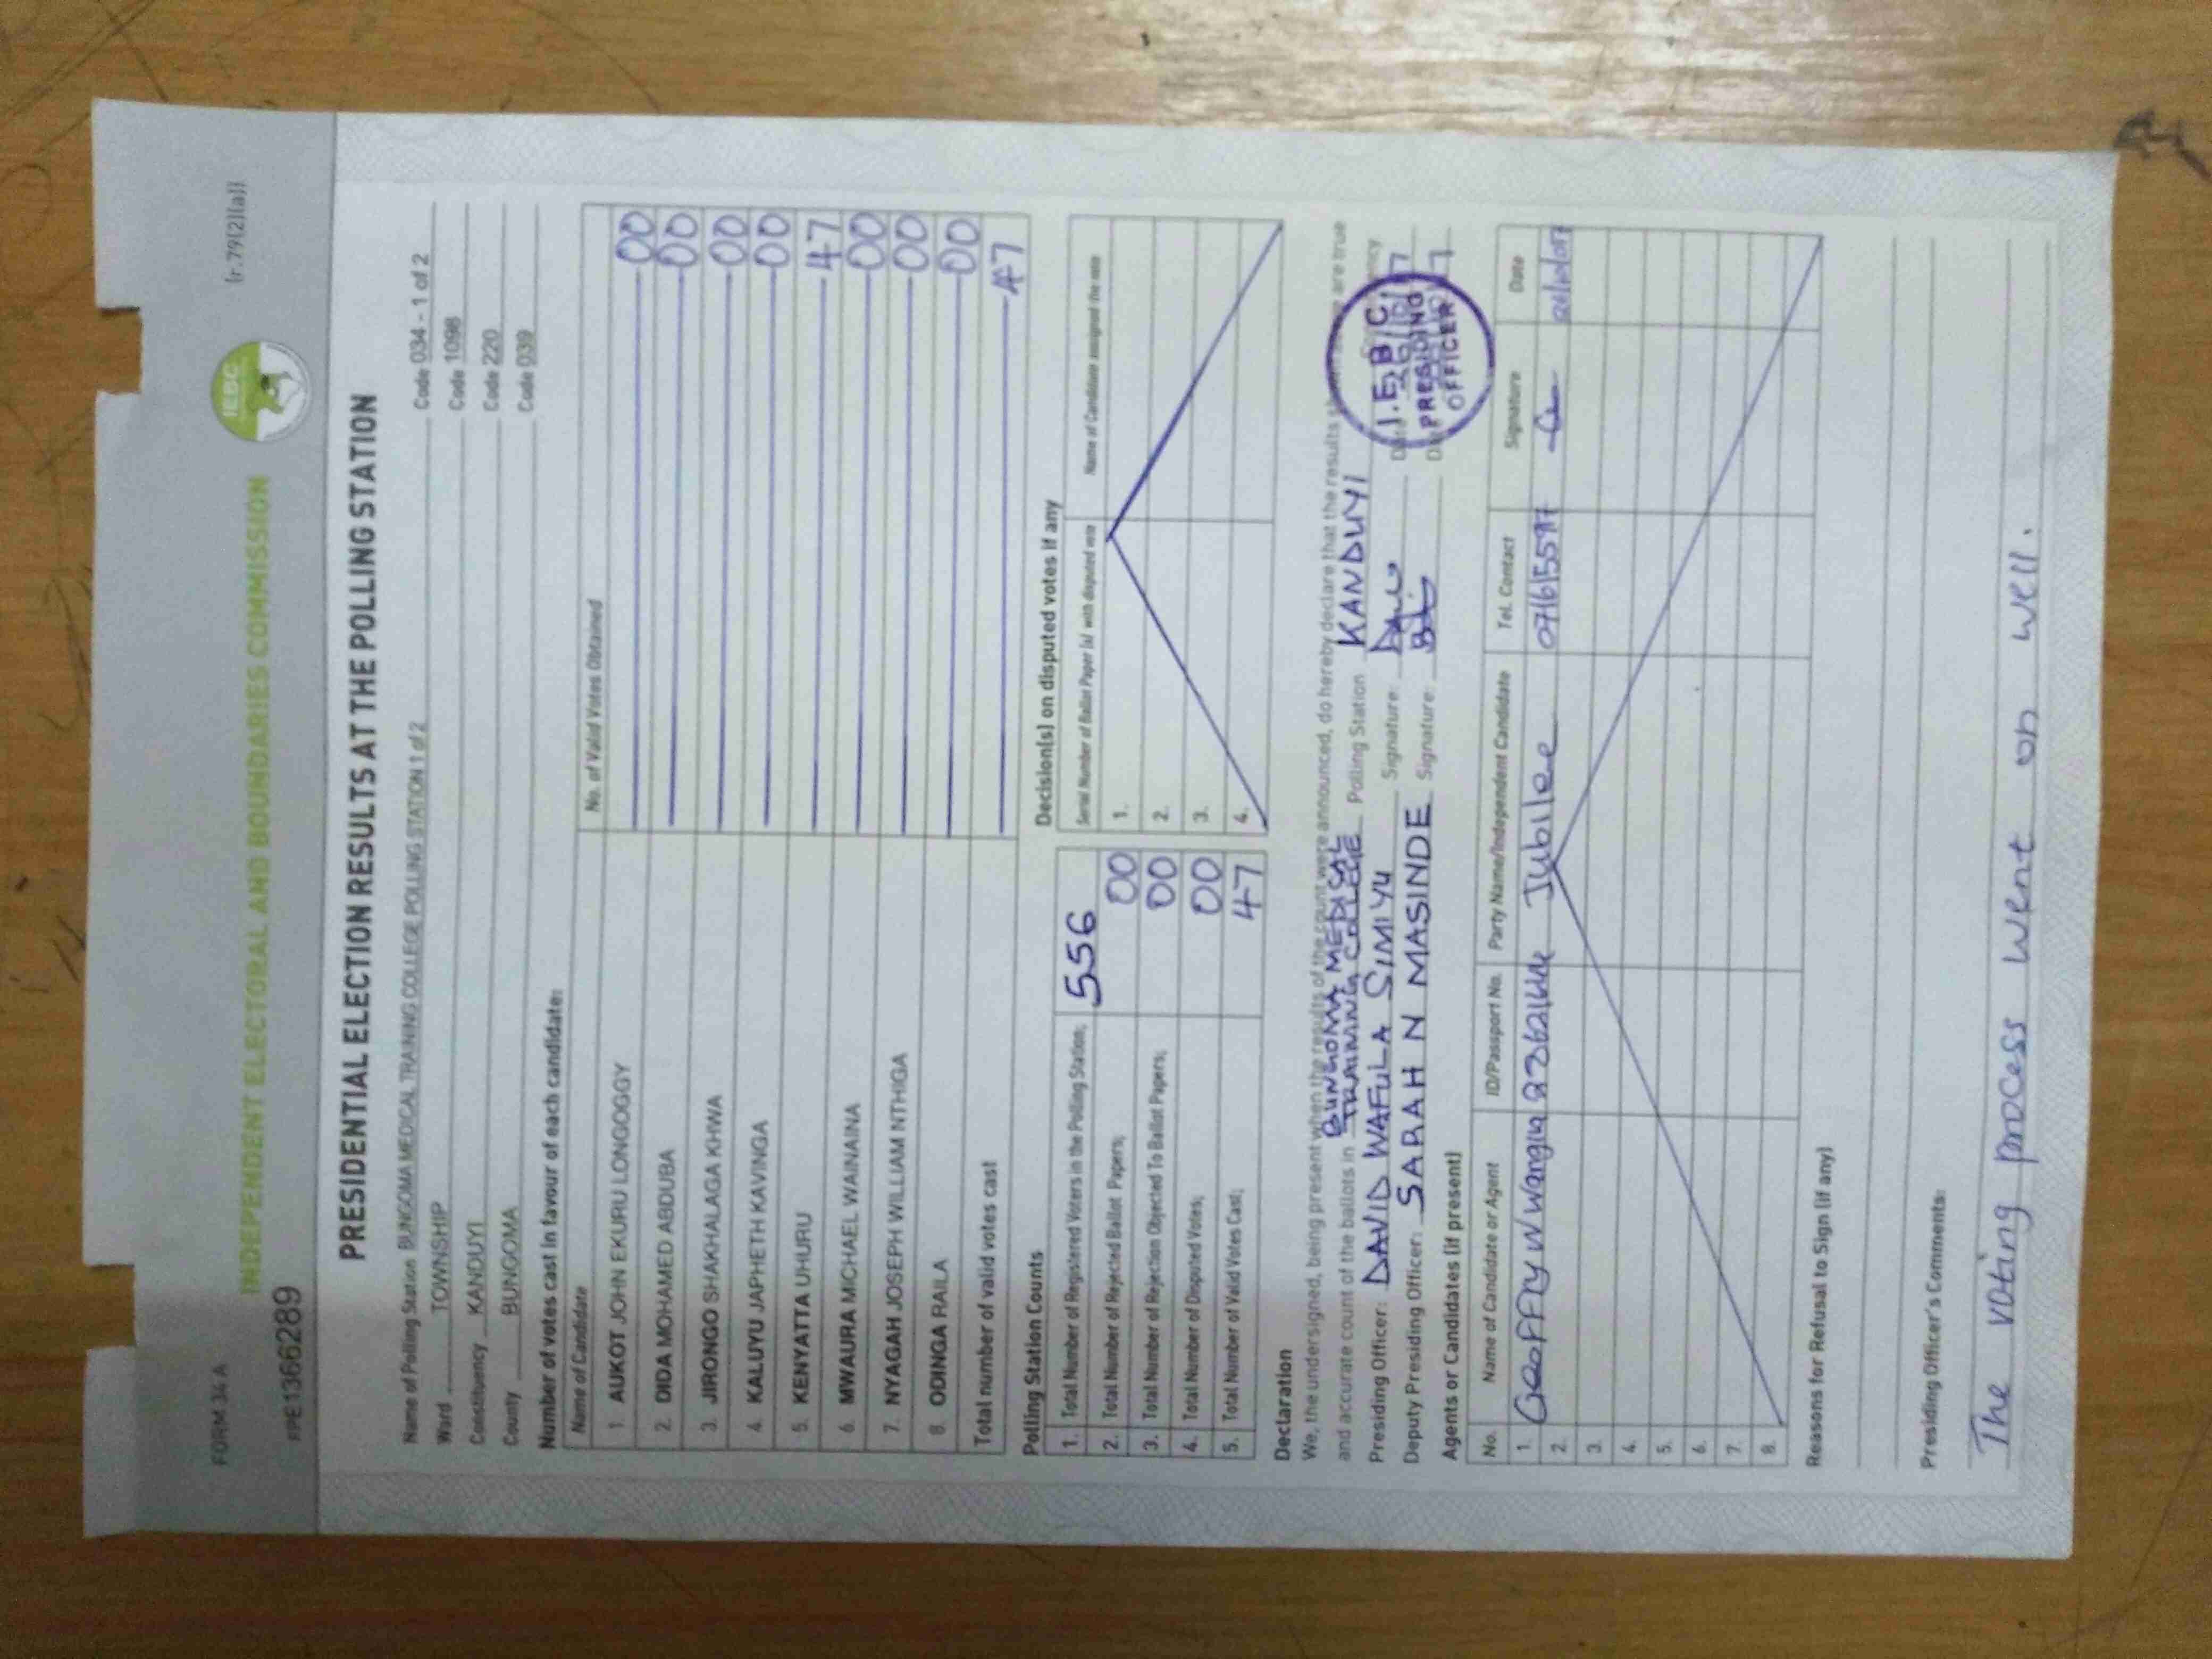 FORM 34 A (r.79(2)(a))
IEBC
INDEPENDENT ELECTORAL AND BOUNDARIES COMMISSION
#PE1366289
PRESIDENTIAL ELECTION RESULTS AT THE POLLING STATION
Name of Polling Station BUNGOMA MEDICAL TRAINING COLLEGE POLLING STATION 1 of 2 Code 034 - 1 of 2
Ward TOWNSHIP Code 1098
Constituency KANDUYI Code 220
County BUNGOMA Code 039
Number of votes cast in favour of each candidate:
Name of Candidate No. of Valid Votes Obtained
1. AUKOT JOHN EKURU LONGOGGY 00
2. DIDA MOHAMED ABDUBA 00
3. JIRONGO SHAKHALAGA KHWA 00
4. KALUYU JAPHETH KAVINGA 00
5. KENYATTA UHURU 47
6. MWAURA MICHAEL WAINAINA 00
7. NYAGAH JOSEPH WILLIAM NTHIGA 00
8. ODINGA RAILA 00
Total number of valid votes cast 47
Polling Station Counts
1. Total Number of Registered Voters in the Polling Station; 556
2. Total Number of Rejected Ballot Papers; 00
3. Total Number of Rejection Objected To Ballot Papers; 00
4. Total Number of Disputed Votes; 00
5. Total Number of Valid Votes Cast; 47
Decision(s) on disputed votes if any
Serial Number of Ballot Paper (s) with disputed vote Name of Candidate assigned the vote
1.
2.
3.
4.
Declaration
We, the undersigned, being present when the results of the count were announced, do hereby declare that the results are true
and accurate count of the ballots in BUNGOMA MEDICAL TRAINING COLLEGE Polling Station KANDUYI
Presiding Officer: DAVID WAFULA SIMIYU Signature:
Deputy Presiding Officer: SARAH N MASINDE Signature:
I.E.B.C.
PRESIDING
OFFICER
Agents or Candidates (if present)
No. Name of Candidate or Agent ID/Passport No. Party Name/Independent Candidate Tel. Contact Signature Date
1. Geoffry W Wangia Jubilee
2.
3.
4.
5.
6.
7.
8.
Reasons for Refusal to Sign (if any)
Presiding Officer's Comments:
The voting process went on well.